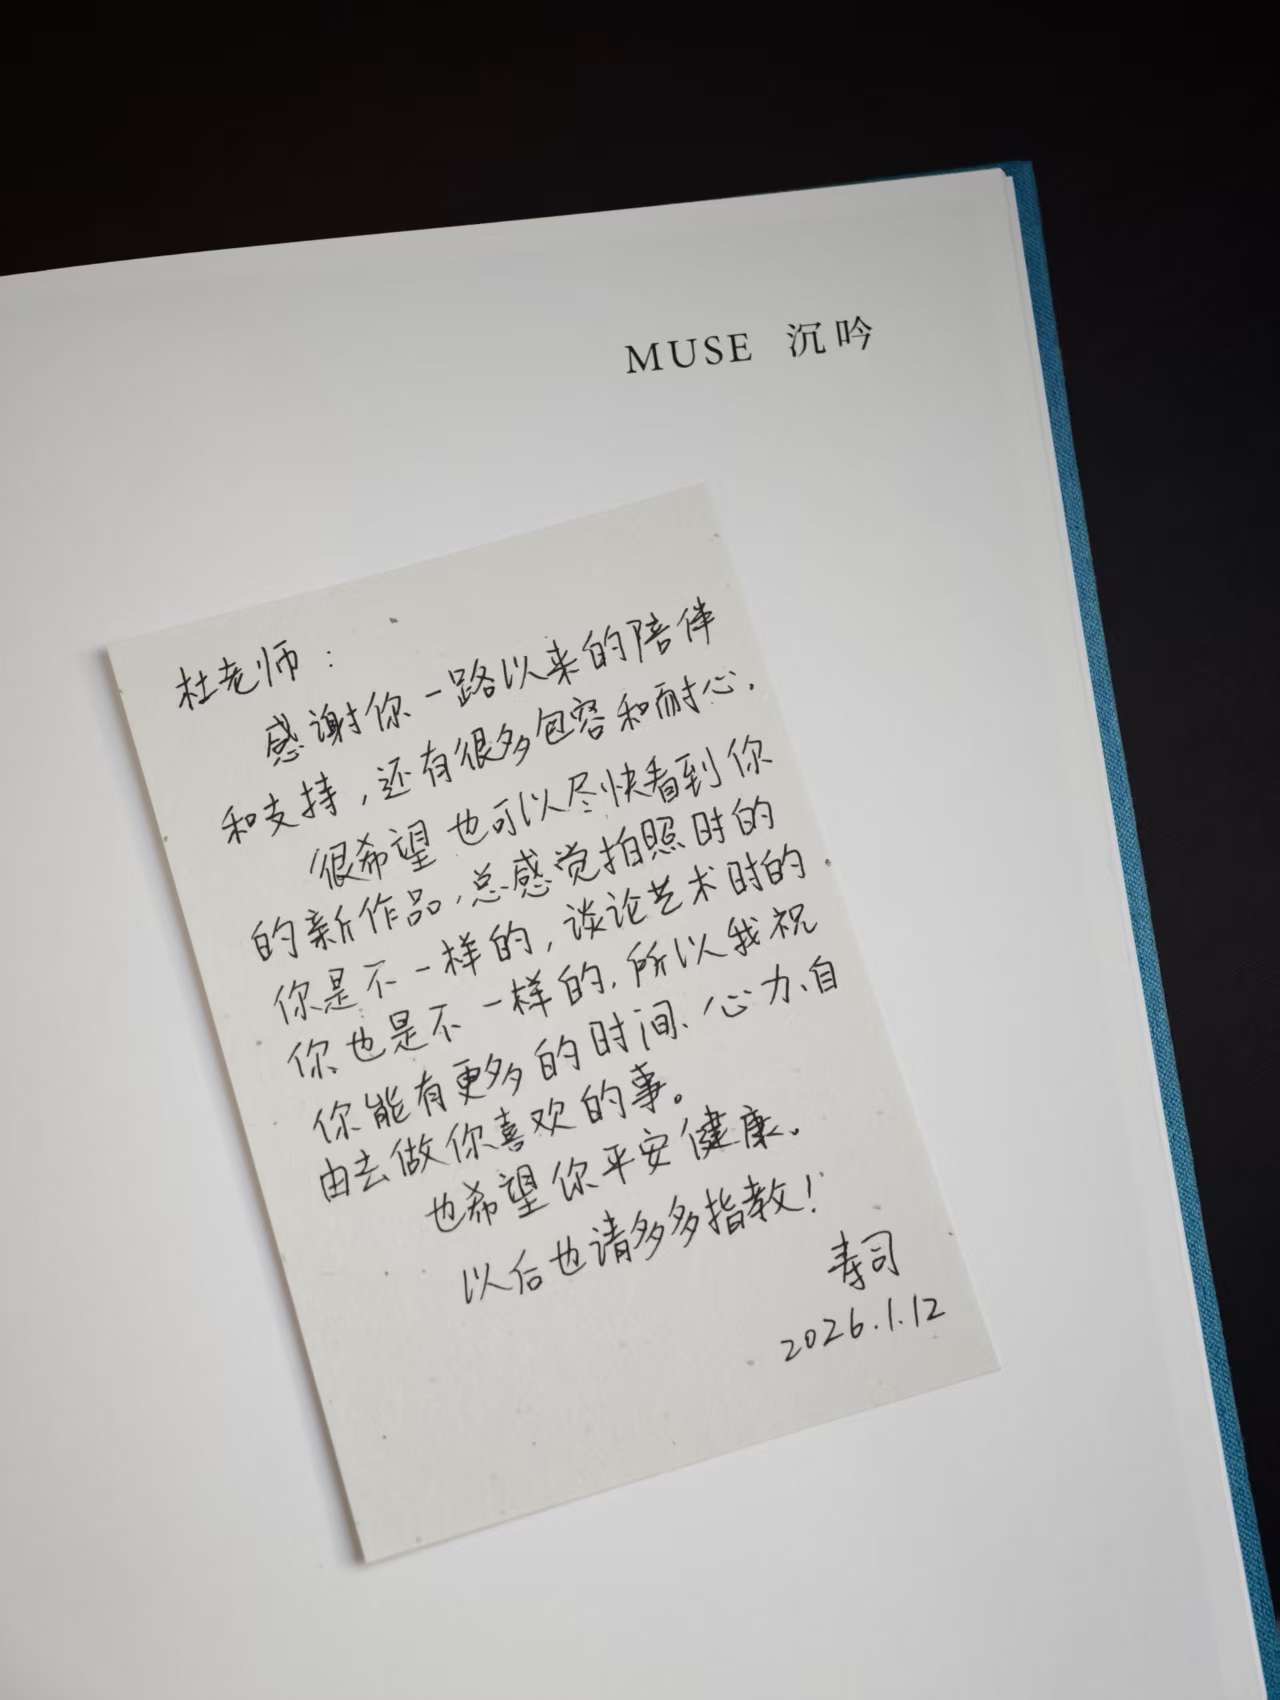 MUSE 沉吟
杜老师：
感谢你一路以来的陪伴
和支持，还有很多包容和耐心.
很希望也可以尽快看到你
的新作品，总感觉拍照时的
你是不一样的，谈论艺术时的
你也是不一样的，所以我祝
你能有更多的时间、心力、自
由去做你喜欢的事。
也希望你平安健康。
以后也请多多指教！
寿司
2026.1.12